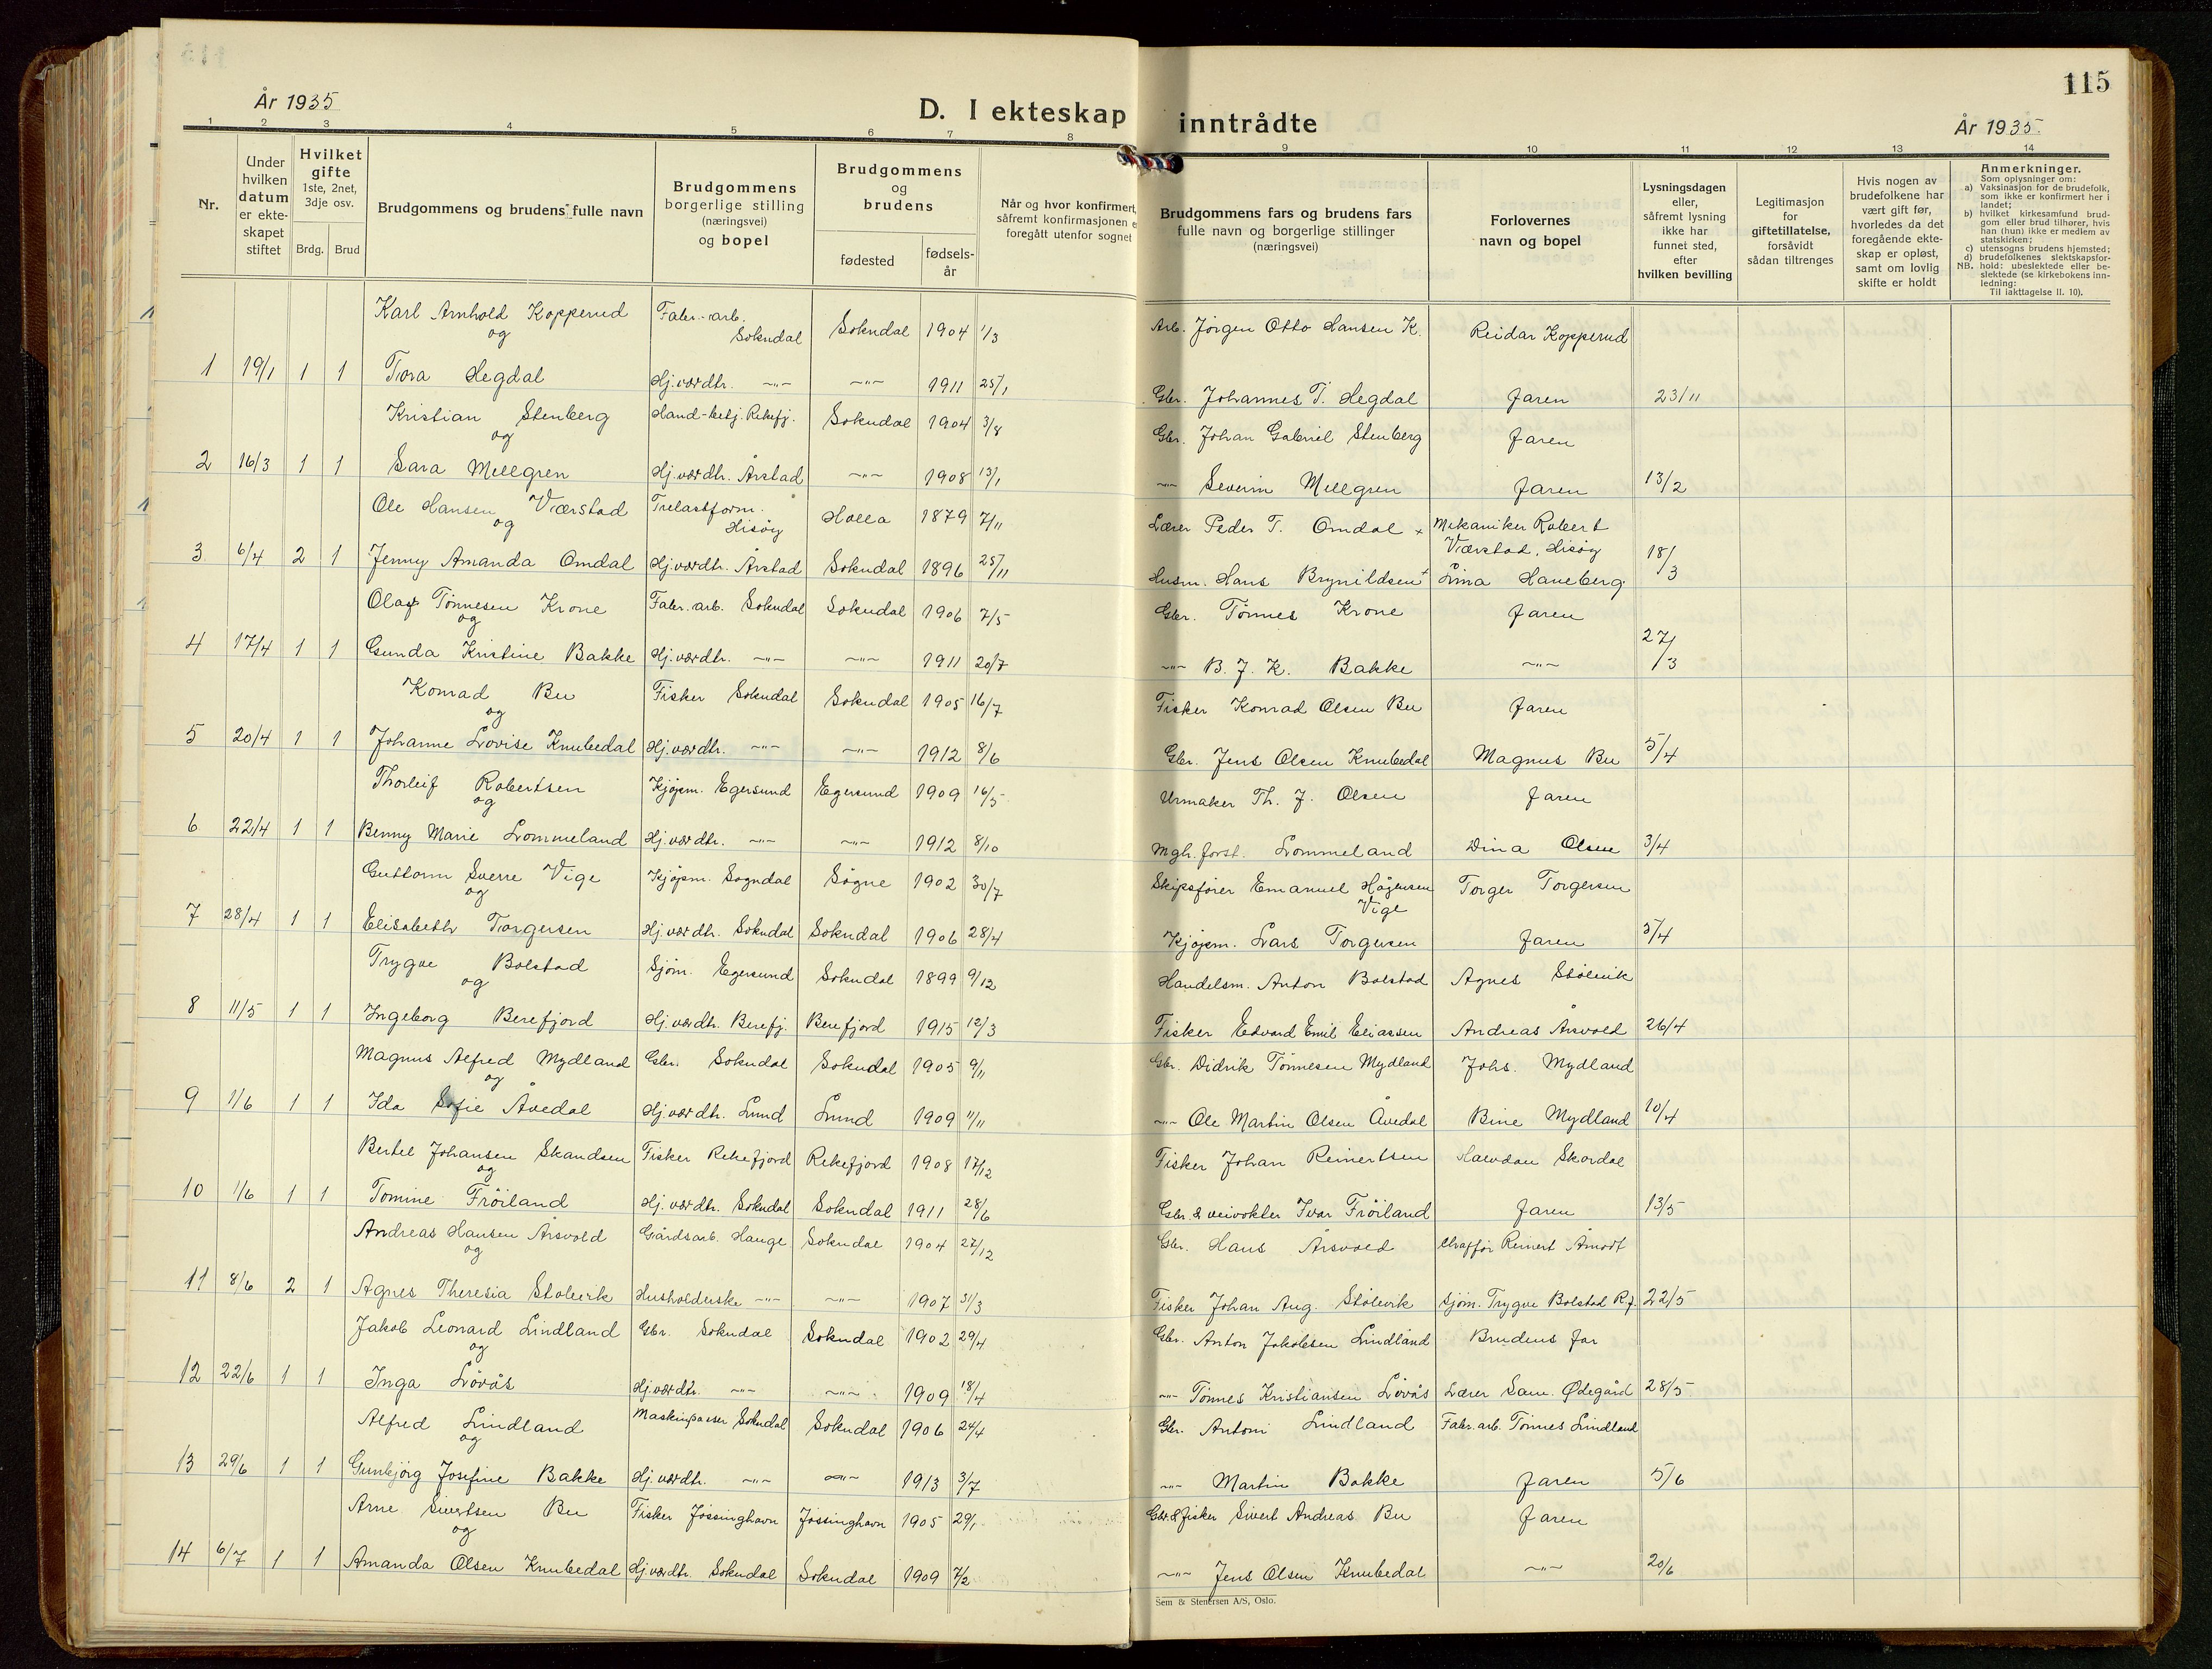 115
År 1935
D. I ekteskap inntrådte
År 1935.
1 2 3 4 5 6 7 8 9 10 11 12 13 14
Nr.
Under hvilken datum er ekte-skapet stiftet
Hvilket gifte
1ste, 2net, 3dje osv.
Brdg. Brud
Brudgommens og brudens fulle navn
Brudgommens borgerlige stilling (næringsvei) og bopel
Brudgommens og brudens
fødested
fødsels-år
Når og hvor konfirmert,
såfremt konfirmasjonen e
foregått utenfor sognet
Brudgommens fars og brudens fars
fulle navn og borgerlige stillinger
(næringsvei)
Forlovernes
navn og bopel
Lysningsdagen
eller,
såfremt lysning
ikke har
funnet sted,
efter
hvilken bevilling
Legitimasjon
for
giftetillatelse,
forsåvidt
sådan tiltrenges
Hvis nogen av
brudefolkene har
vært gift før,
hvorledes da det
foregående ekte-
skap er opløst,
samt om lovlig
skifte er holdt
Anmerkninger.
Som oplysninger om:
a) Vaksinasjon for de brudefolk, som ikke er konfirmert her i landet;
b) hvilket kirkesamfund brud-gom eller brud tilhører, hvis han (hun) ikke er medlem av statskirken;
c) utensogns brudens hjemsted;
d) brudefolkenes slektskapsfor-
NB. hold: ubeslektede eller be-slektede (se kirkebokens inn-ledning:
Til iakttagelse II. 10).
Karl Arnhold Kopperud Fabr.-arb. Sokndal Sokndal 1904 1/3 Arb. Jørgen Otto Hansen K. Reidar Kopperud
og
1 19/1 1 1 Tora Hegdal Hj.værdtr. -"- -"- 1911 25/1 Gbr. Johannes T. Hegdal Faren 23/11
Kristian Stenberg Hand-betj. Rekefj. Sokndal 1904 3/8 Gbr. Johan Gabriel Stenberg Faren
og
2 16/3 1 1 Sara Mellgren Hj.værdtr. Årstad -"- 1908 13/1 -"- Severin Mellgren Faren 13/2
Ole Hansen Værstad Trelastform. Hisøy Holla 1879 7/11 Lærer Peder T. Omdal x Mekaniker Robert Værstad, Hisøy
og
3 6/4 2 1 Jenny Amanda Omdal Hj.værdtr. Årstad Sokndal 1896 25/11 Husm. Hans Brynildsen + Lina Haneberg 18/3
Olaf Tønnesen Krone Fabr.arb. Sokndal Sokndal 1906 7/5 Gbr. Tønnes Krone Faren
og
4 17/4 1 1 Gunda Kristine Bakke Hj.værdtr. -"- -"- 1911 20/7 -"- B. J. K. Bakke -"- 27/3
Konrad Bu Fisker Sokndal Sokndal 1905 16/7 Fisker Konrad Olsen Bu Faren
og
5 20/4 1 1 Johanne Lovise Knubedal Hj.værdtr. -"- -"- 1912 8/6 Gbr. Jens Olsen Knubedal Magnus Bu 5/4
Thorleif Robertsen Kjøpm. Egersund Egersund 1909 16/5 Urmaker Th. J. Olsen Faren
og
6 22/4 1 1 Benny Marie Lommeland Hj.værdtr. -"- -"- 1912 8/10 Mgh. forst. Lommeland Dina Olsen 3/4
Guttorm Sverre Vige Kjøpm. Sogndal Søgne 1902 30/7 Skipsfører Emanuel Høgensen Vige Torger Torgersen
og
7 28/4 1 1 Elisabeth Torgersen Hj.værdtr. Sokndal Sokndal 1906 28/4 Kjøpm. Lars Torgersen Faren 5/4
Trygve Bolstad Sjøm. Egersund Sokndal 1899 9/12 Handelsm. Anton Bolstad Agnes Stölevik
og
8 11/5 1 1 Ingeborg Berefjord Hj.værdtr. Berefj. Berefjord 1915 12/3 Fisker Edvard Emil Eliassen Andreas Årsvold 26/4
Magnus Alfred Mydland Gbr. Sokndal Sokndal 1905 9/11 Gbr. Didrik Tönnesen Mydland Johs. Mydland
og
9 1/6 1 1 Ida Sofie Åvedal Hj.værdtr. Lund Lund 1909 1/11 -"- Ole Martin Olsen Åvedal Bine Mydland 10/4
Bertel Johansen Skandsen Fisker Rekefjord Rekefjord 1908 17/12 Fisker Johan Reinertsen Halvdan Skordal
og
10 1/6 1 1 Tomine Fröiland Hj.værdtr. Sokndal Sokndal 1911 28/6 Gbr. & veivokter Ivar Fröiland Faren 13/5
Andreas Hansen Årsvold Gårdsarb. Hauge Sokndal 1904 27/12 Gbr. Hans Årsvold Chaffør Reinert Åmodt
og
11 8/6 2 1 Agnes Theresia Stölevik Husholderske -"- -"- 1907 31/3 Fisker Johan Aug. Stölevik Sjøm. Trygve Bolstad R.f. 22/5
Jakob Leonard Lindland Gbr. Sokndal Sokndal 1902 29/4 Gbr. Anton Jakobsen Lindland Brudens far
og
12 22/6 1 1 Inga Lövås Hj.værdtr. -"- -"- 1909 18/4 -"- Tønnes Kristiansen Lövås Lærer Sam. Ødegård 28/5
Alfred Lindland Maskinpasser Sokndal Sokndal 1906 24/4 Gbr. Antoni Lindland Fabr.arb. Tönnes Lindland
og
13 29/6 1 1 Gunbjörg Josefine Bakke Hj.værdtr. -"- -"- 1913 3/7 -"- Martin Bakke Faren 5/6
Arne Sivertsen Bu Fisker Jössinghavn Jössinghavn 1905 29/1 Gbr. & fisker Sivert Andreas Bu Faren
og
14 6/7 1 1 Amanda Olsen Knubedal Hj.værdtr. Sokndal Sokndal 1909 7/2 -"- Jens Olsen Knubedal -"- 20/6
Sem & Stenersen A/S, Oslo.